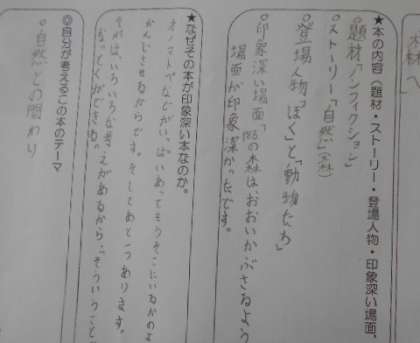 本へ
★本の内容（題材・ストーリー・登場人物・印象深い場面、
◦題材「ノンフィクション」
◦ストーリー「自然」(森林)
◦登場人物「ぼく」と「動物たち」
◦印象深い場面 夜の森は、おおいかぶさるよう
場面が印象深かったです。
★なぜその本が印象深い本なのか。
オノマトペなどがいっぱいあってもうそこにいるかのよ
かんじさせるからです。そしてあと一つあります。
それはいろいろな考えがあるから、「そういうこと
なっとくができる。
◎自分が考えるこの本のテーマ
「自然」との関わり